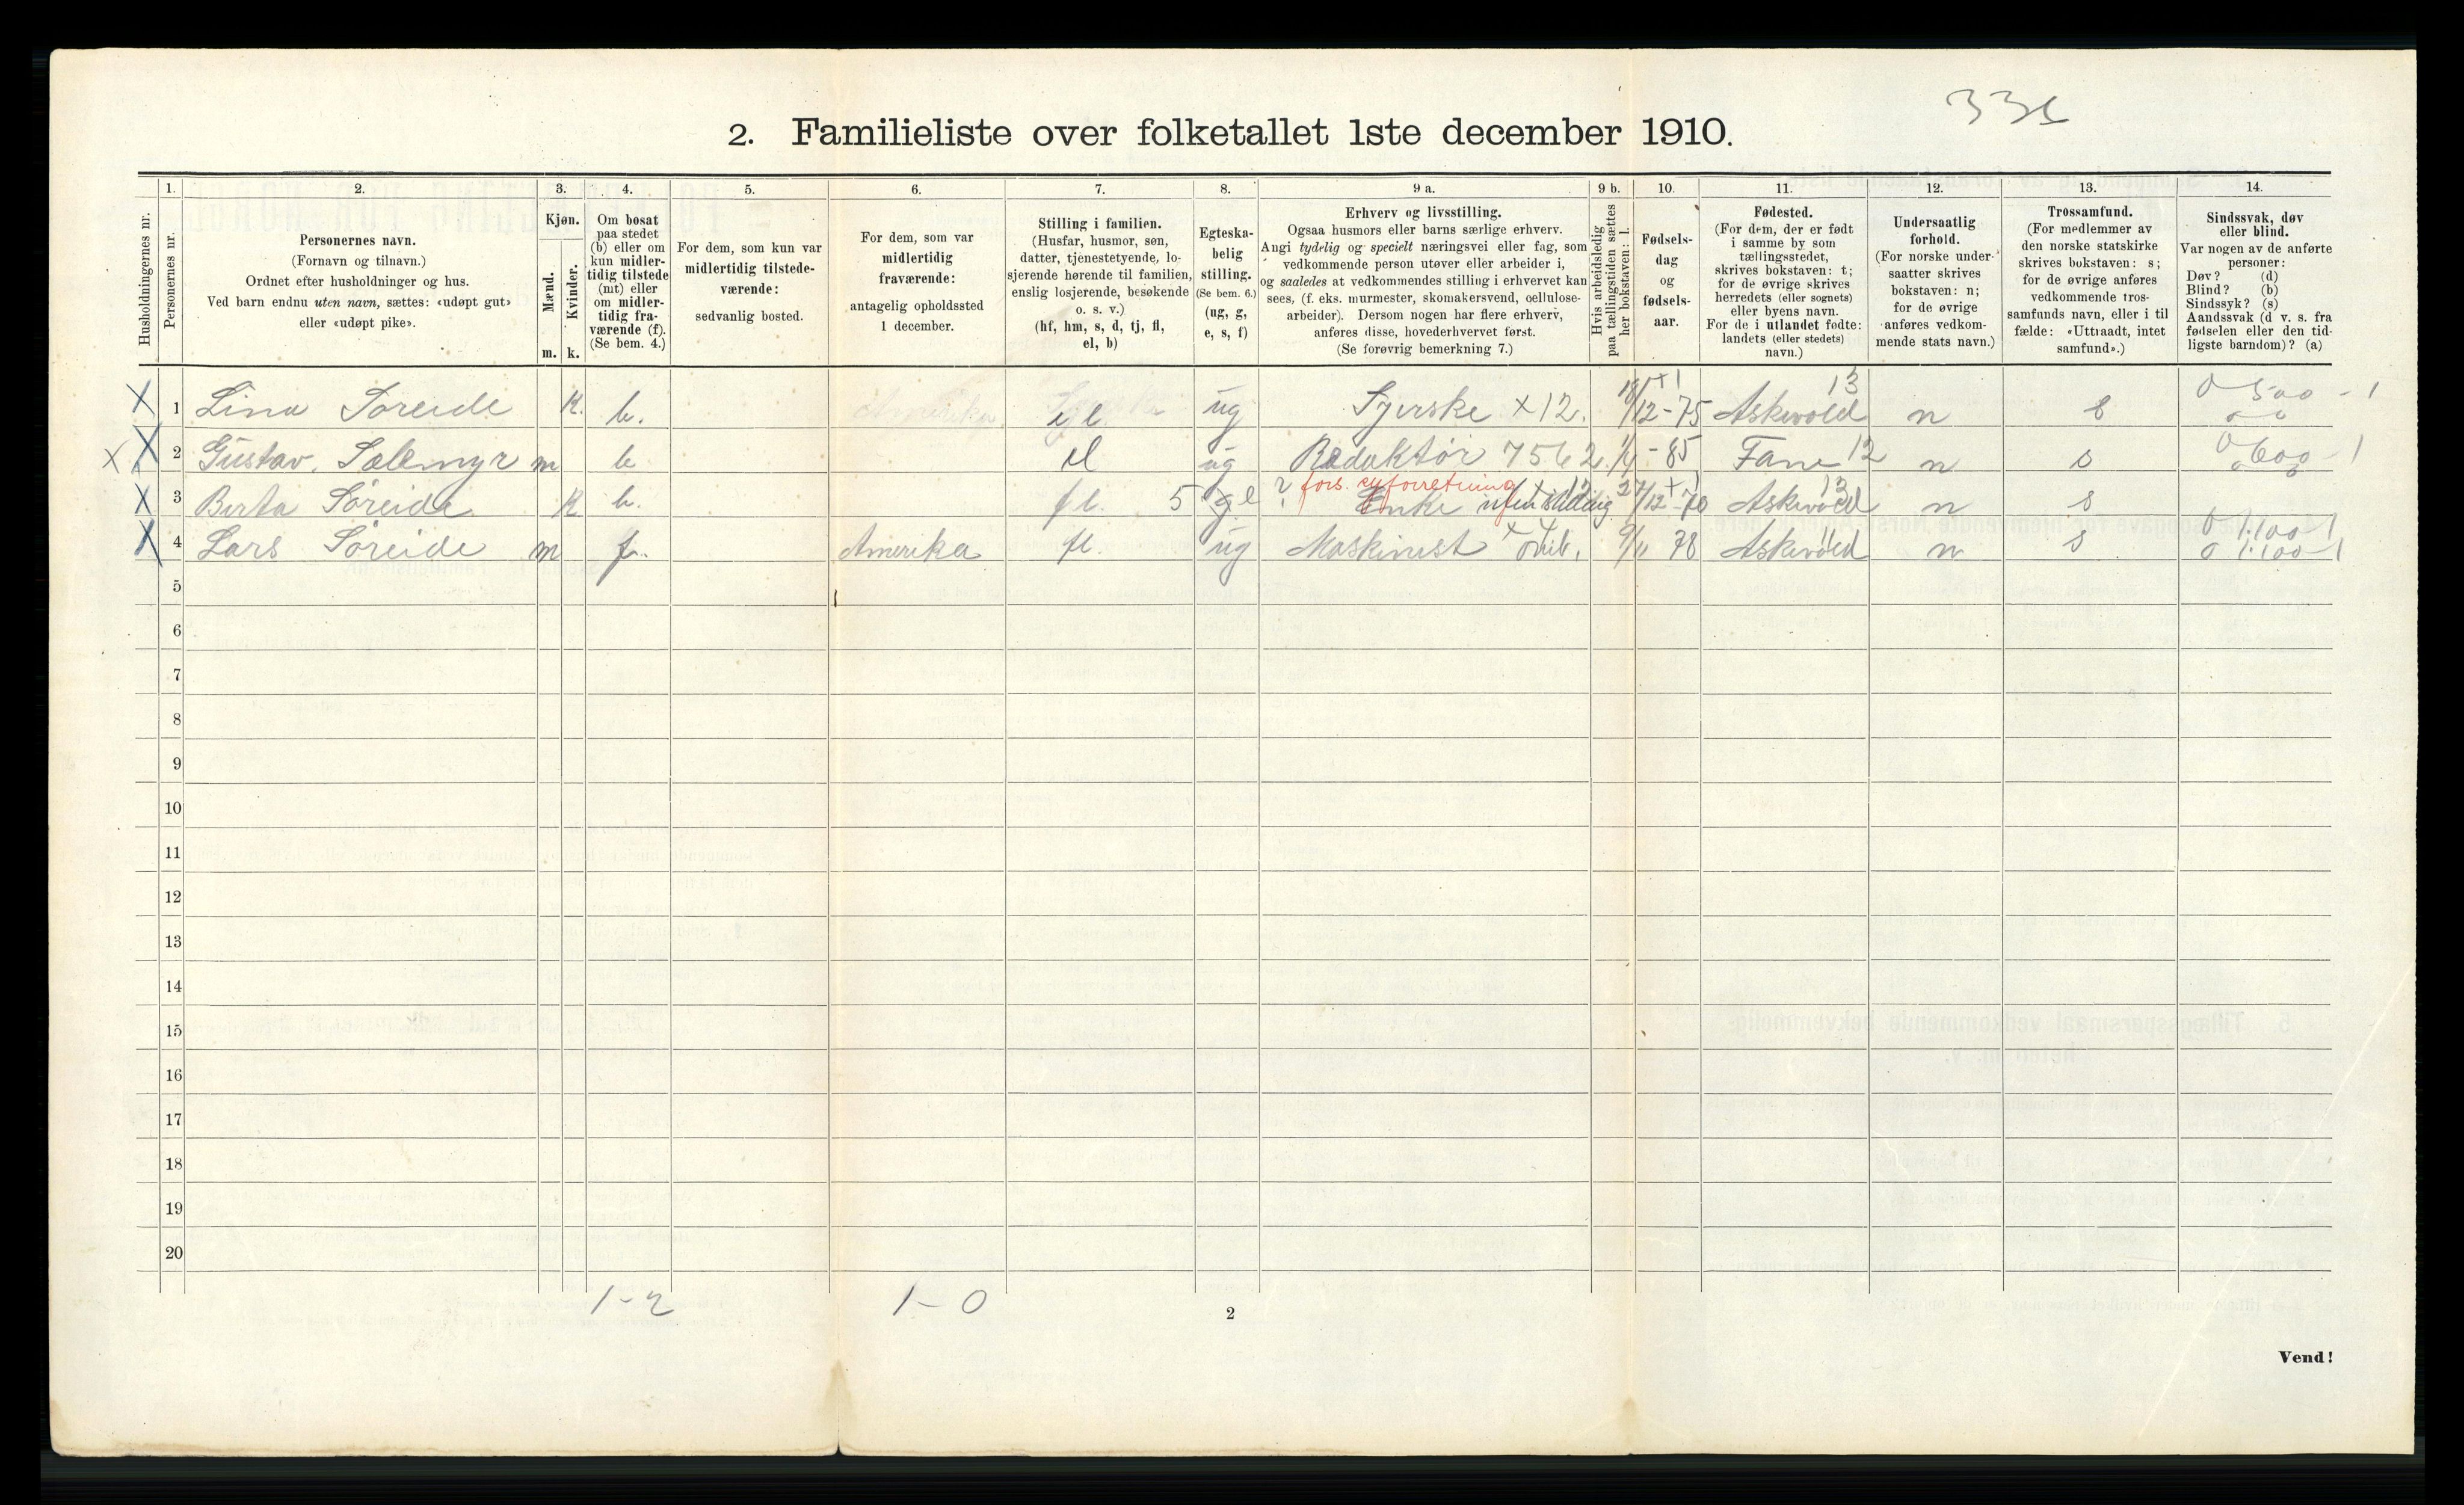 33
2. Familieliste over folketallet 1ste december 1910.
Husholdningernes nr.
1.
Personernes nr.
2.
Personernes navn.
(Fornavn og tilnavn.)
Ordnet efter husholdninger og hus.
Ved barn endnu uten navn, sættes: «udøpt gut»
eller «udøpt pike».
3.
Kjøn.
Mænd.
Kvinder.
m. k.
4.
Om bosat
paa stedet
(b) eller om
kun midler-
tidig tilstede
(mt) eller
om midler-
tidig fra-
værende (f).
(Se bem. 4.)
5.
For dem, som kun var
midlertidig tilstede-
værende:
sedvanlig bosted.
6.
For dem, som var
midlertidig
fraværende:
antagelig opholdssted
1 december.
7.
Stilling i familien.
(Husfar, husmor, søn,
datter, tjenestetyende, lo-
sjerende hørende til familien,
enslig losjerende, besøkende
o. s. v.)
(hf, hm, s, d, tj, fl,
el, b)
8.
Egteska-
belig
stilling.
(Se bem. 6.)
(ug, g,
e, s, f)
9 a.
Erhverv og livsstilling.
Ogsaa husmors eller barns særlige erhverv.
Angi tydelig og specielt næringsvei eller fag, som
vedkommende person utøver eller arbeider i,
og saaledes at vedkommendes stilling i erhvervet kan
sees, (f. eks. murmester, skomakersvend, cellulose-
arbeider). Dersom nogen har flere erhverv,
anføres disse, hovederhvervet først.
(Se forøvrig bemerkning 7.)
9 b.
Hvis arbeidsledig
paa tællingstiden sættes
her bokstaven: l.
10.
Fødsels-
dag
og
fødsels-
aar.
11.
Fødested.
(For dem, der er født
i samme by som
tællingsstedet,
skrives bokstaven: t;
for de øvrige skrives
herredets (eller sognets)
eller byens navn.
For de i utlandet fødte:
landets (eller stedets)
navn.)
12.
Undersaatlig
forhold.
(For norske under-
saatter skrives
bokstaven: n;
for de øvrige
anføres vedkom-
mende stats navn.)
13.
Trossamfund.
(For medlemmer av
den norske statskirke
skrives bokstaven: s;
for de øvrige anføres
vedkommende tros-
samfunds navn, eller i til
fælde: «Uttraadt, intet
samfund».)
14.
Sindssvak, døv
eller blind.
Var nogen av de anførte
personer:
Døv? (d)
Blind? (b)
Sindssyk? (s)
Aandssvak (d v. s. fra
fødselen eller den tid-
ligste barndom)? (a)
X 1 Lina Søreide k. b. el ug Syerske X12. 18/12-75 13 Askevold n s 0 500 - 1
X X 2 Gustav. Sælemyr m b el ug Redaktør 7562. 1/4 -85 Fane 12 n s 0 600 - 1
X 3 Berta Søreide k b. fl. 5 ? fors. syforretning Enke 27/12-70 13 Askevold n s
X 4 Lars Søreide m f. Amerika fl. ug Maskinist 9/11 78 Askevold n s 0 1.100-1
0 1.100-1
5
6
7
8
9
10
11
12
13
14
15
16
17
18
19
20
1-2 1-0
2
Vend!